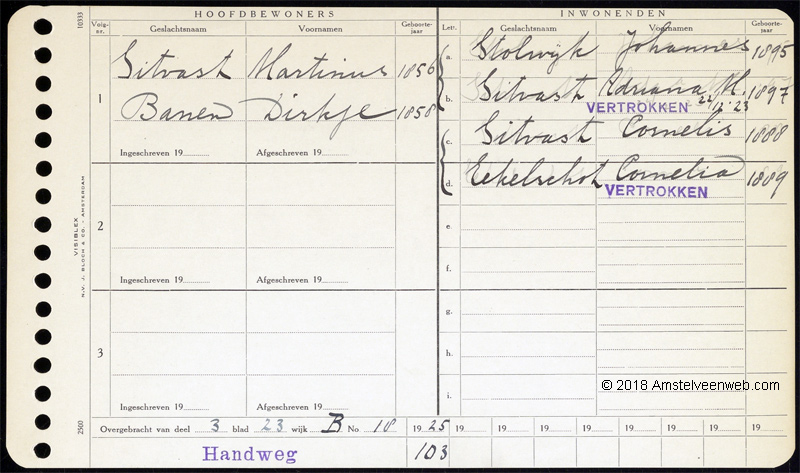 HOOFDBEWONERS
INWONENDEN
10333
Volgnr.
Geslachtsnaam
Voornamen
Geboortejaar
Letr.
Geslachtsnaam
Voornamen
Geboortejaar
1
Sitvast Martinus 1856
Banen Dirkje 1858
Ingeschreven 19
Afgeschreven 19
a. Stolwijk Johannes 1895
b. Sitvast Adriana M. 1897
VERTROKKEN 22/12 '23
c. Sitvast Cornelis 1888
d. Eekelschot Cornelia 1889
VERTROKKEN
2
Ingeschreven 19
Afgeschreven 19
e.
f.
3
Ingeschreven 19
Afgeschreven 19
g.
h.
i.
VISIBLEX
N.V. J. BLOCH & CO. - AMSTERDAM
2500
© 2018 Amstelveenweb.com
Overgebracht van deel 3 blad 23 wijk B No 18 1925 19 19 19 19 19 19 19 19
Handweg 103